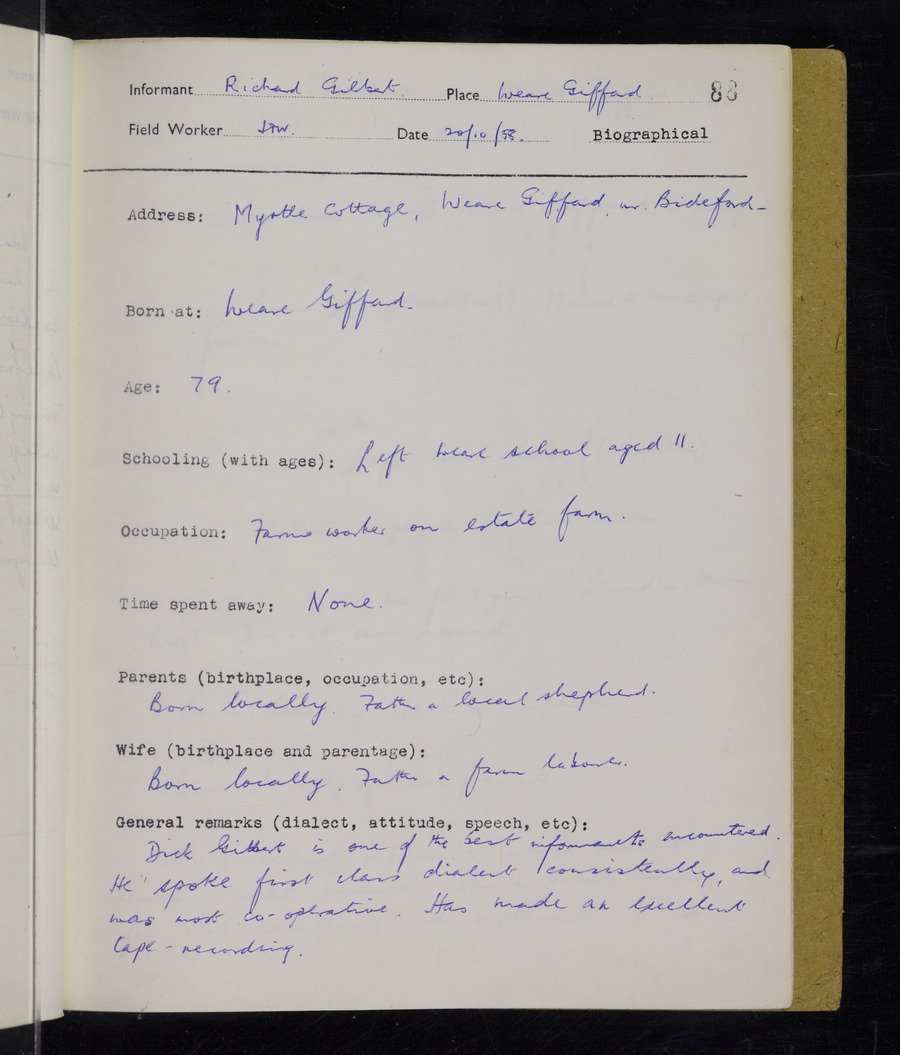 Informant Richard Gilbert. Place Weare Giffard. 88
Field Worker Date 20/10/58. Biographical
Address: Myrtle Cottage, Weare Giffard, nr. Bideford-
Born at: Weare Giffard-
Age: 79.
Schooling (with ages): Left Weare school aged 11.
Occupation: Farm worker on estate farm.
Time spent away: None.
Parents (birthplace, occupation, etc):
Born locally. Father a local shepherd.
Wife (birthplace and parentage):
Born locally. Father a farm labourer.
General remarks (dialect, attitude, speech, etc):
Dick Gilbert is one of the best informants encountered.
He spoke first class dialect consistently, and
was most co-operative. Has made an excellent
tape-recording.